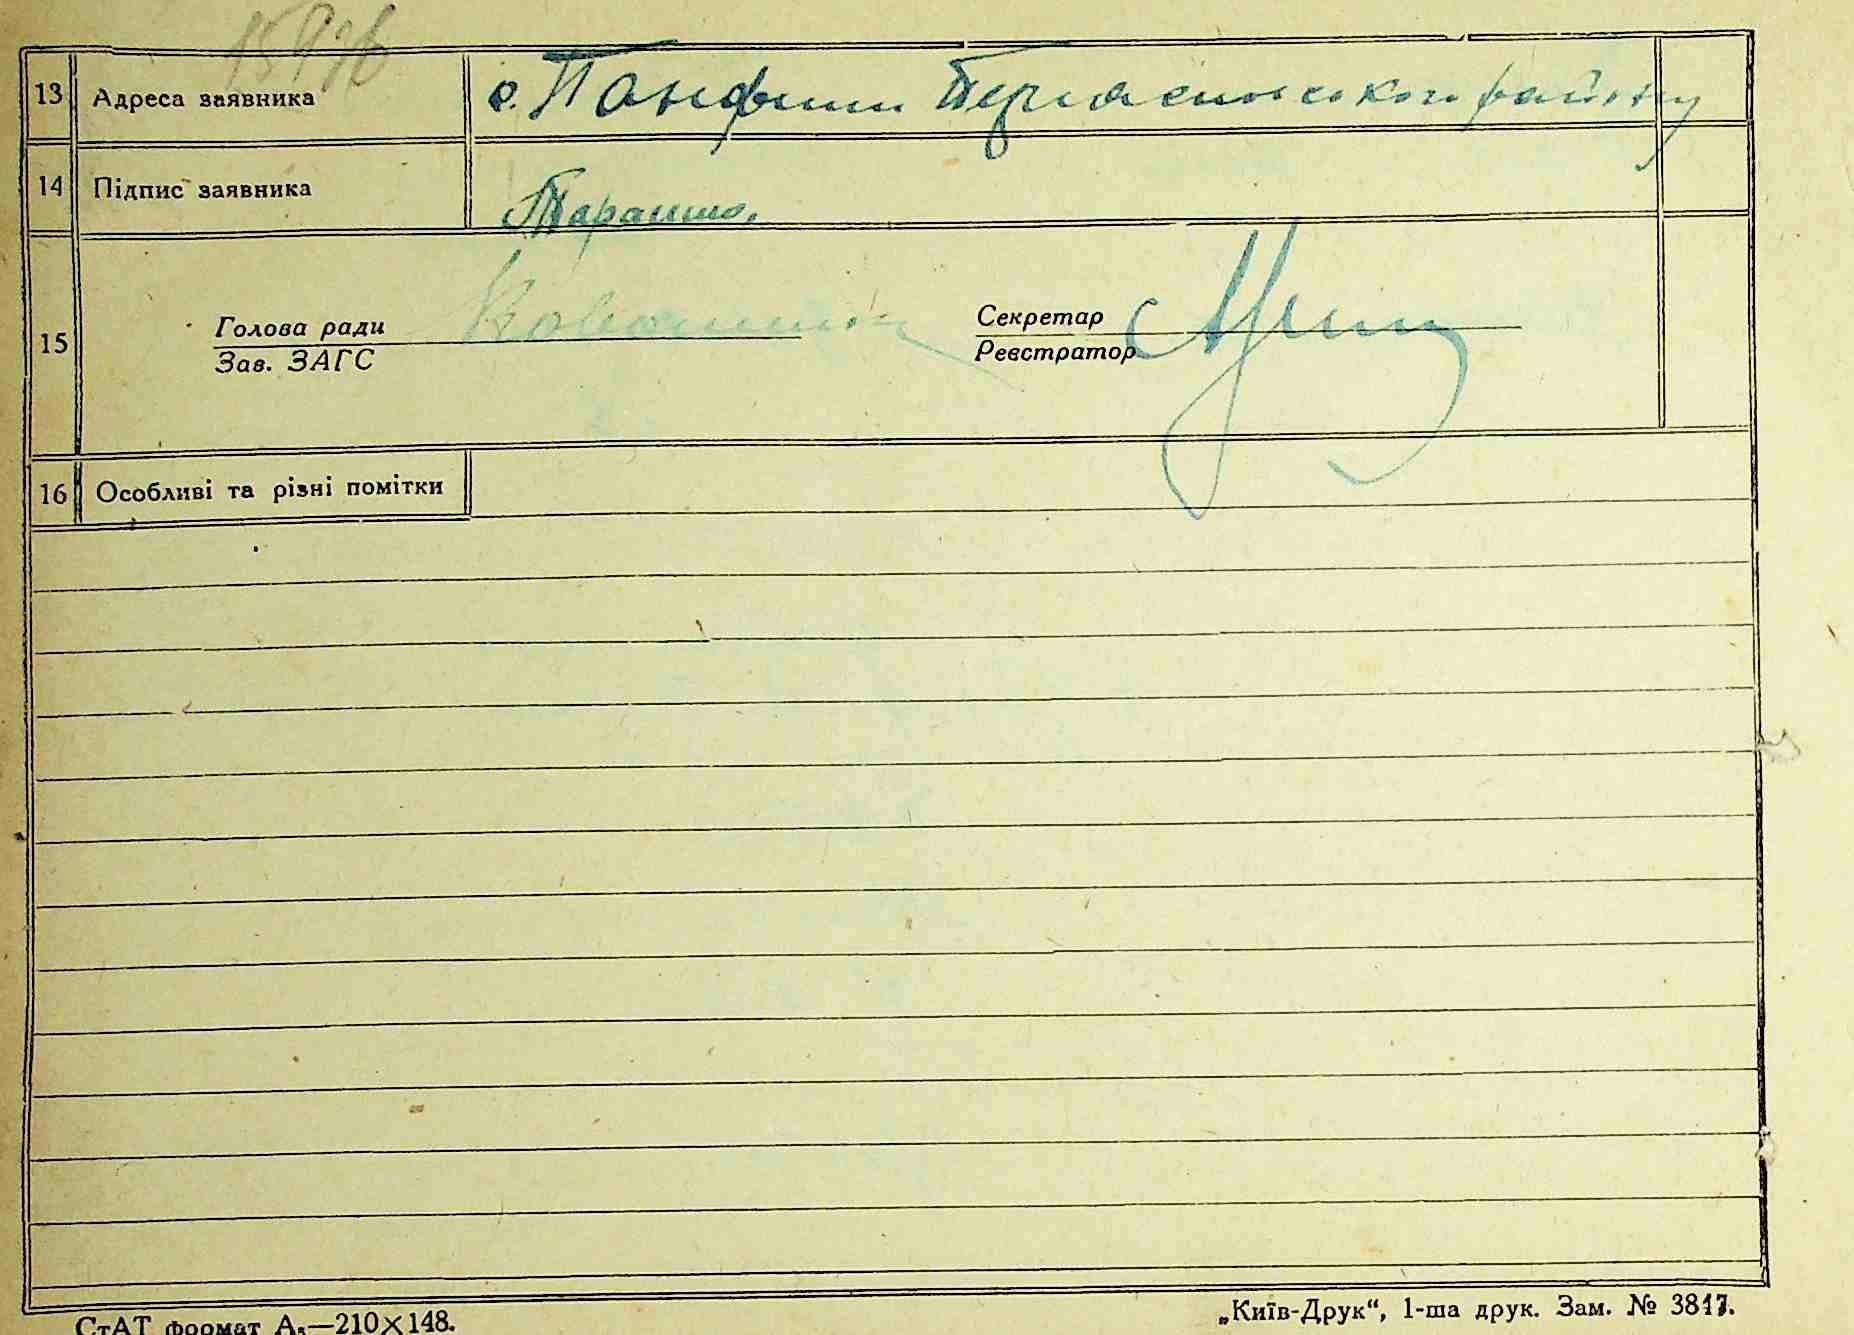 13 Адреса заявника с. Панфили Переяславського району
14 Підпис заявника
15 Голова ради
Зав. ЗАГС
Секретар
Реєстратор
16 Особливі та різні помітки
СтАТ формат А₅—210×148.
„Київ-Друк“, 1-ша друк. Зам. № 3817.